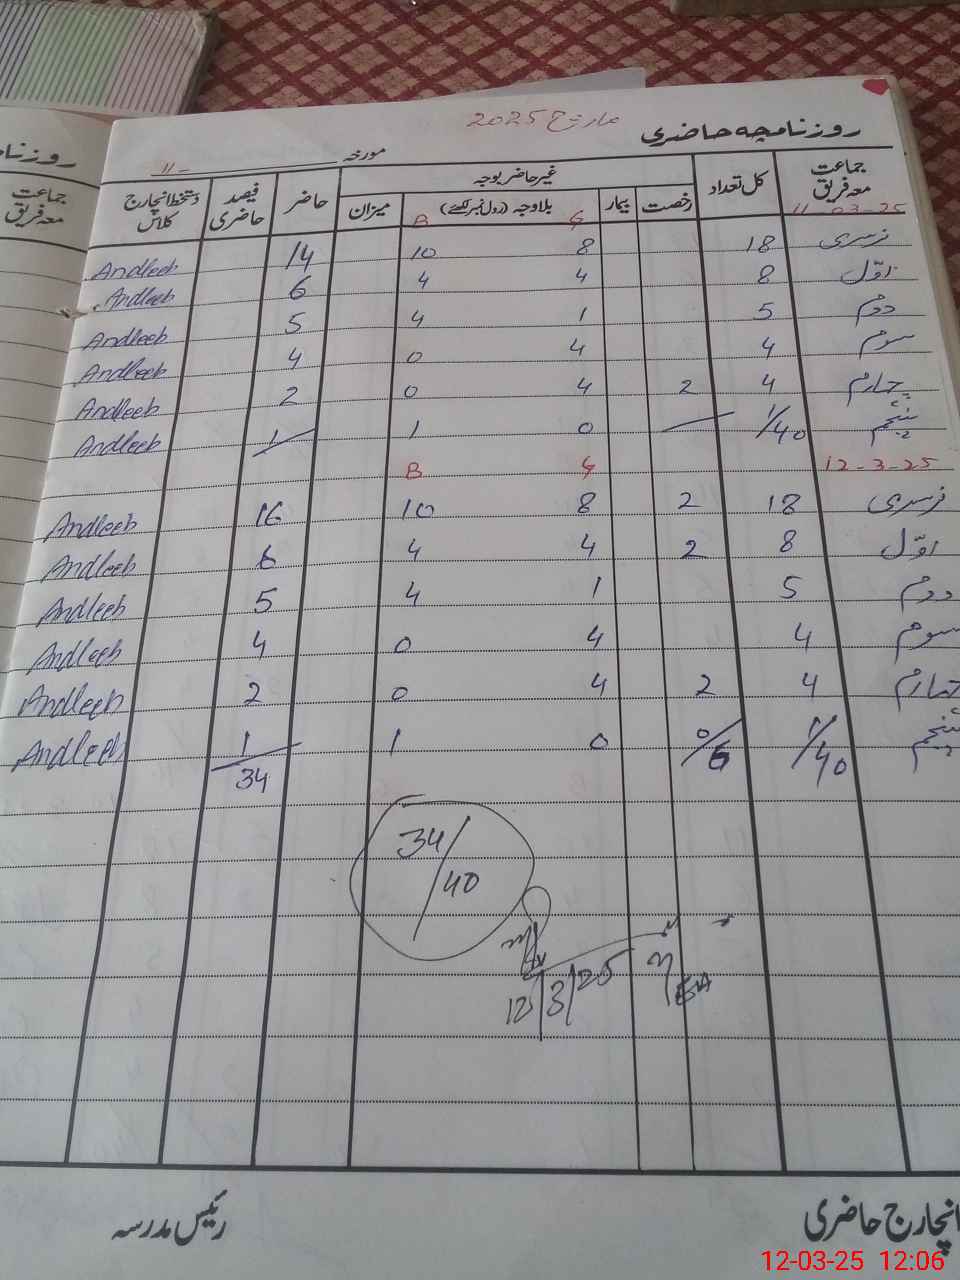 مارچ 2025
روزنامچہ حاضری
مورخہ 11-
جماعت معہ فریق کل تعداد غیر حاضر بوجہ حاضر فیصد حاضری دستخط انچارج کلاس
رخصت بیمار بلاوجہ (رول نمبر لکھیئے) میزان
11-03-25 G B
نرسری 18 8 10 14 Andleeb
اوّل 8 4 4 6 Andleeb
دوم 5 1 4 5 Andleeb
سوم 4 4 0 4 Andleeb
چہارم 4 2 4 0 2 Andleeb
پنجم 1/40 0 1 1 Andleeb
12-3-25 G B
نرسری 18 2 8 10 16 Andleeb
اوّل 8 2 4 4 6 Andleeb
دوم 5 1 4 5 Andleeb
سوم 4 4 0 4 Andleeb
چہارم 4 2 4 0 2 Andleeb
پنجم 1/40 0/6 0 1 1 Andleeb
34
34/40
12/3/25
انچارج حاضری رئیس مدرسہ
روزنا
جماعت معہ فریق
12-03-25 12:06